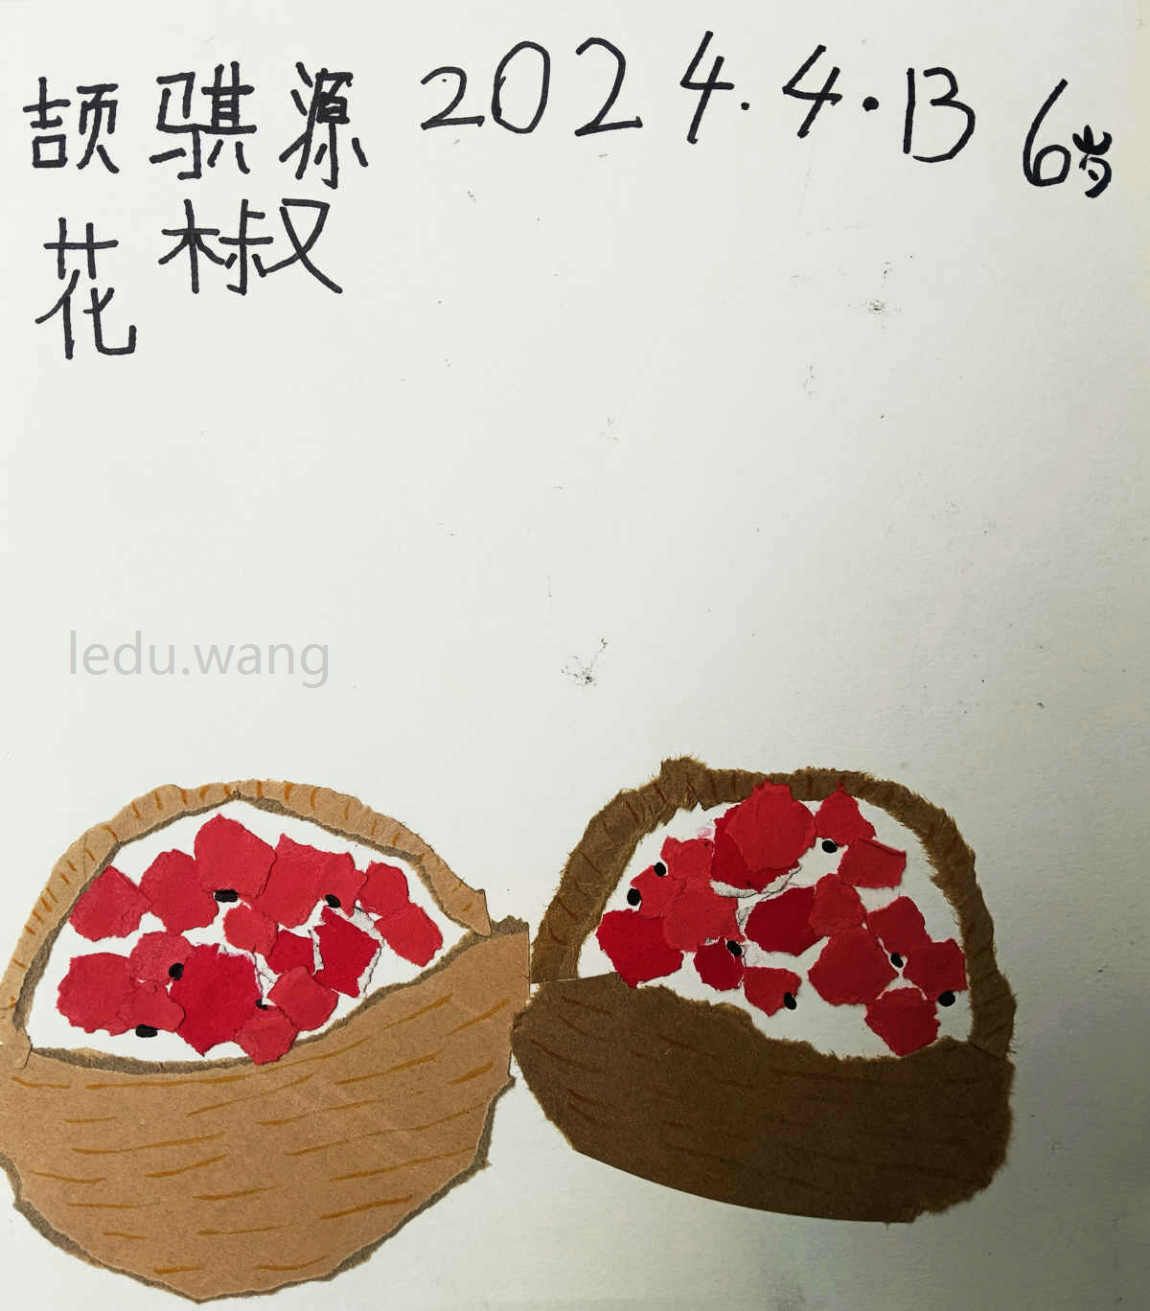 颉骐源 2024.4.13 6岁
花椒
ledu.wang